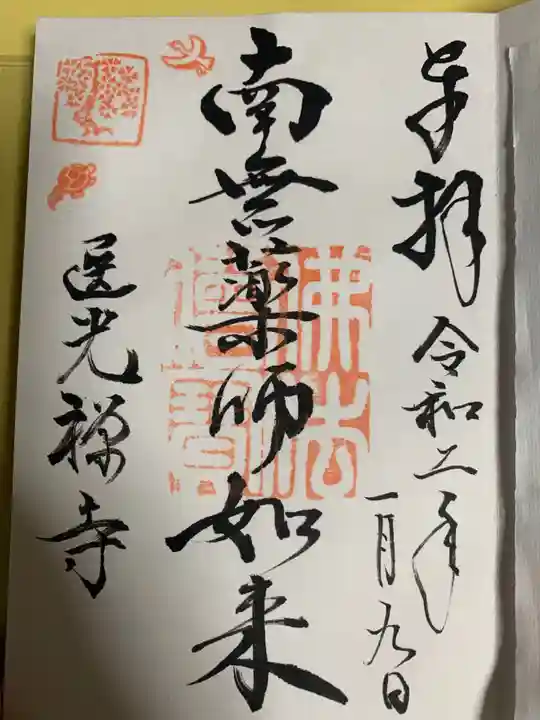 奉拝
令和二年
一月九日
南無薬師如来
佛法僧寶
医光禅寺